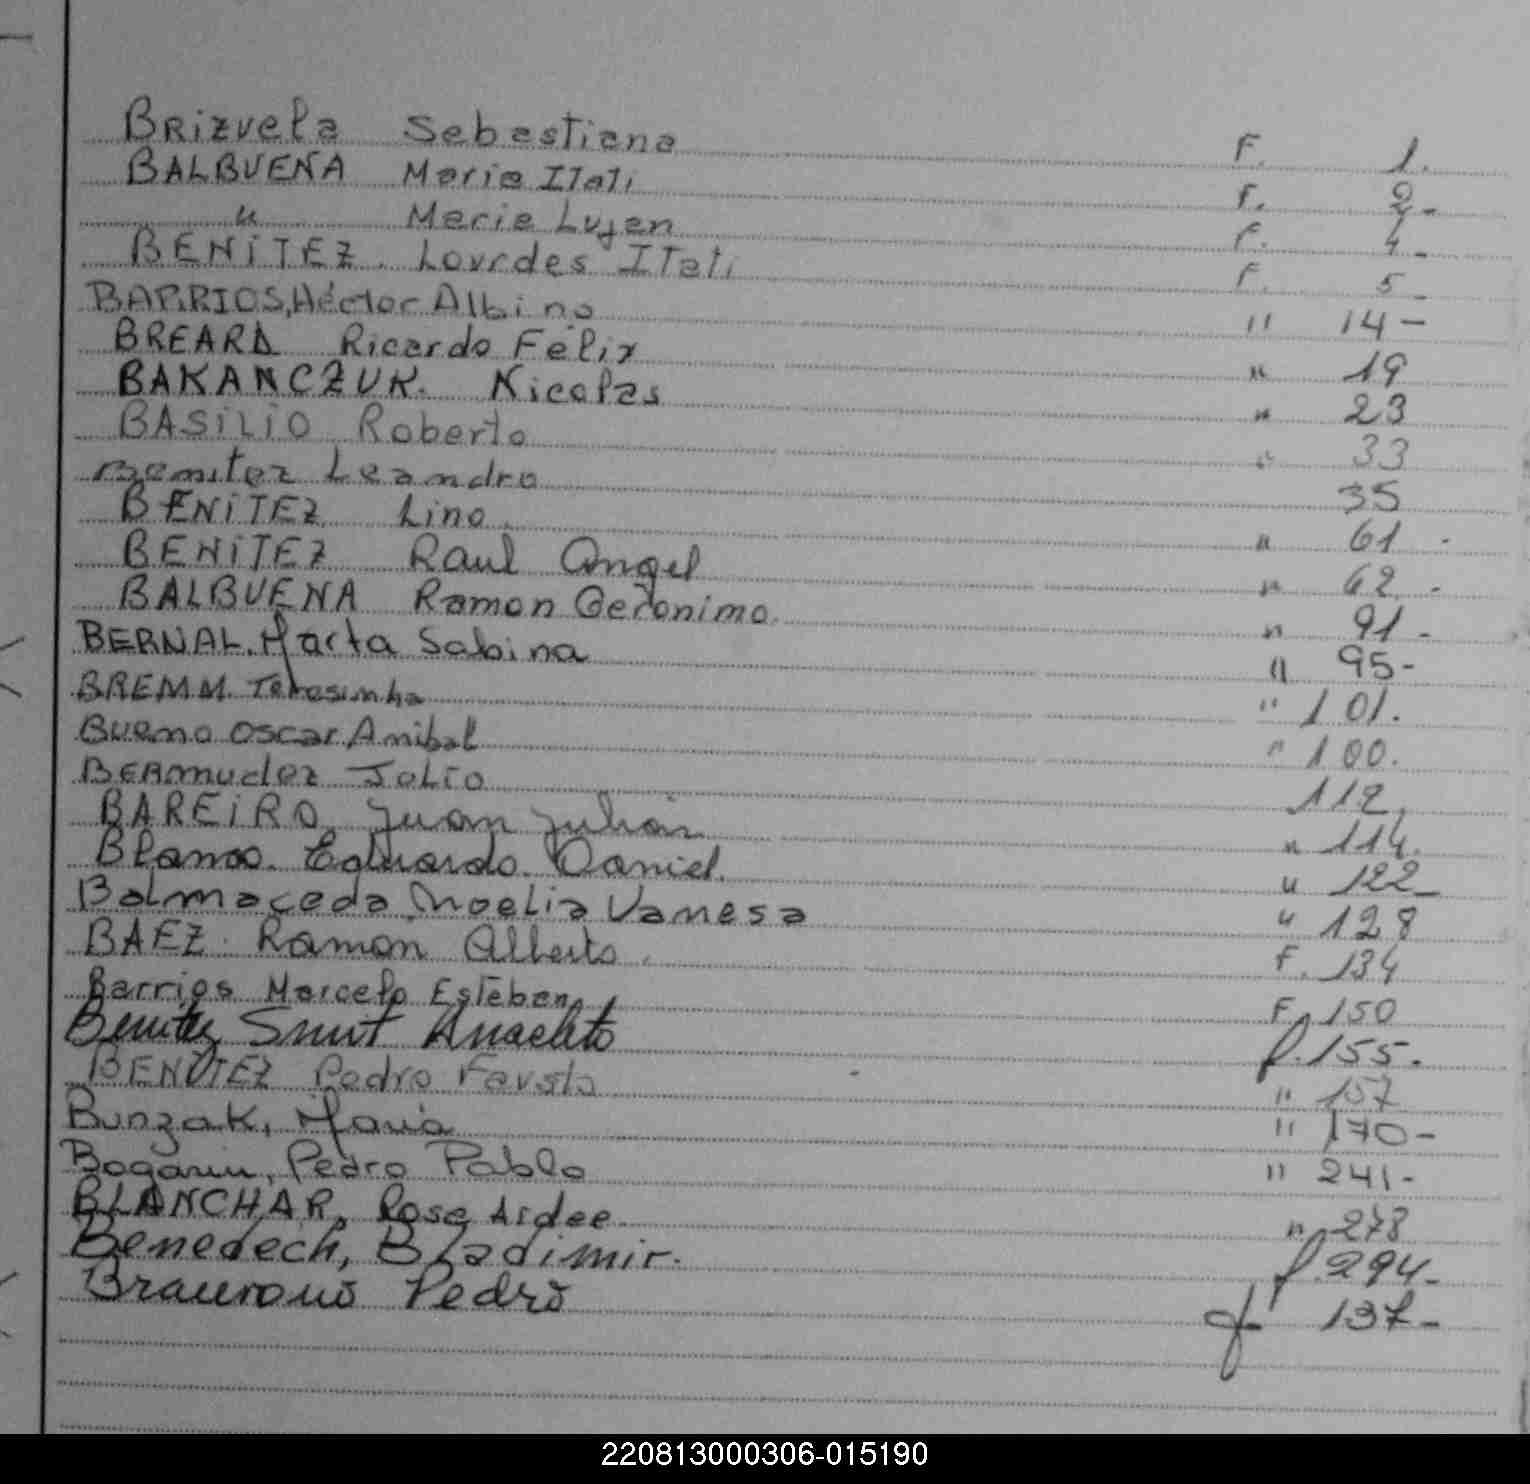 BRizuela Sebastiana F. 1.
BALBUENA Maria ITati F. 2-
" Maria Lujan F. 4-
BENITEZ. Lourdes ITati F. 5-
BARRIOS, Héctor Albino " 14-
BREARD Ricardo Félix " 19
BAKANCZUK. Nicolas " 23
BASILIO Roberto " 33
Benitez Leandro 35
BENITEZ Lino. " 61 -
BENITEZ Raul Angel " 62. -
BALBUENA Ramon Geronimo. " 91 -
BERNAL, Marta Sabina " 95-
BREMM Teresinha " 101.
Bueno Oscar Anibal " 100.
BERmudez Julio 112.
BAREIRO Juan Julian " 114.
Blanco. Eduardo Daniel. " 122-
Balmaceda Noelia Vanesa " 128
BAEZ. Ramón Alberto. F. 134
Barrios Marcelo Esteban F. 150
Benitez Anacleto f. 155.
BENITEZ Pedro Fausto " 157
Bunzak, Maria " 170-
Bogarin, Pedro Pablo " 241-
BLANCHAR, Rosa Aidee. " 278
Benedech, Bladimir. f. 294-
Pedro f 137-
220813000306-015190